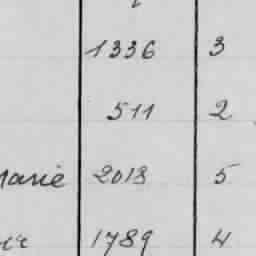 1336 3
511 2
marie 2013 5
1789 4